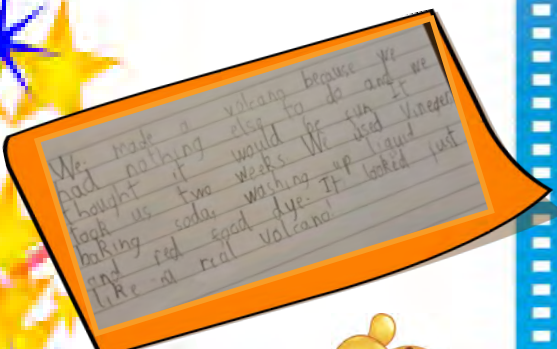 We made a volcano because we
had nothing else to do and we
thought it would be fun. It
took us two weeks. We used vineger,
baking soda, washing up liquid
and red food dye. It looked just
like a real volcano!